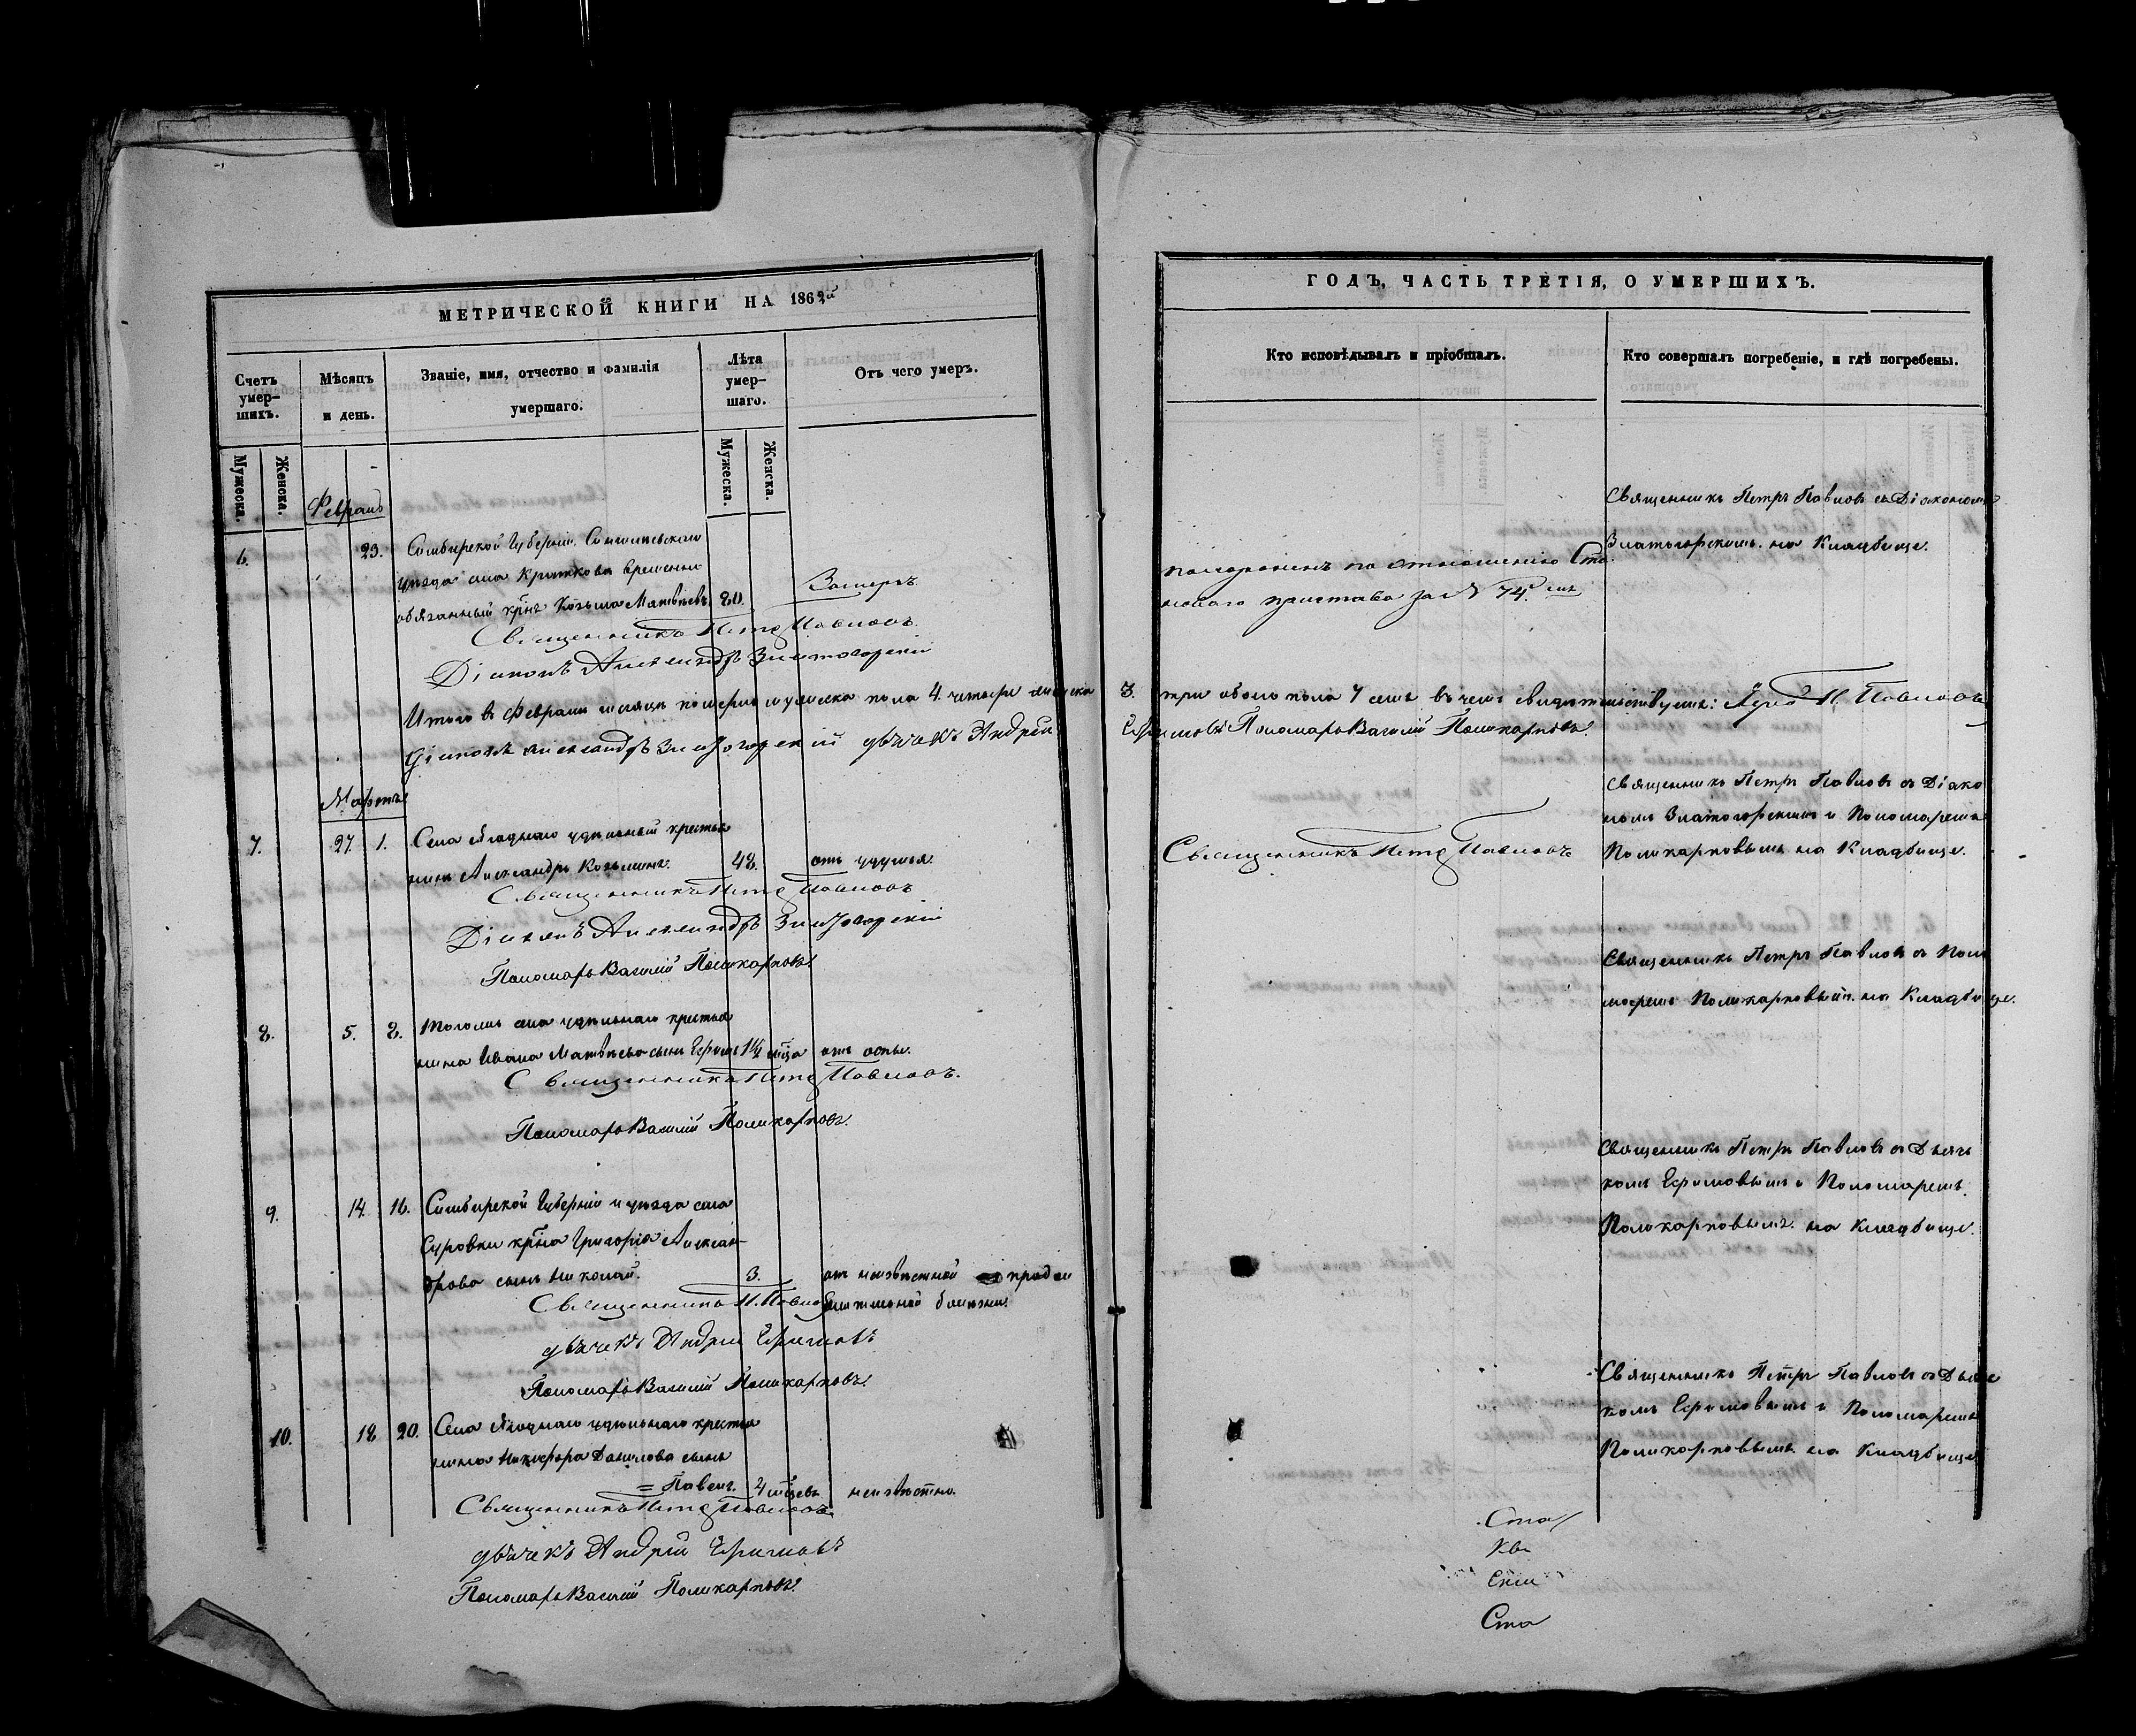 МЕТРИЧЕСКОЙ КНИГИ НА 1862й
Счетъ умер-
шихъ.
Мѣсяцъ
и день.
Званіе, имя, отчество и фамилія
умершаго.
Лѣта
умер-
шаго.
Отъ чего умеръ.
Мужеска.
Женска.
Мужеска.
Женска.
Февраль
6. 23. Симбирской Губерніи Сенгилеевскаго
уѣзда села Кроткова временно
обязанный крн҃ъ Козьма Матвѣевъ 80. Замерзъ
Священникъ Петръ Павловъ.
Діаконъ Александръ Златогорскій
Итого въ Февралѣ мѣсяцѣ померло мужеска пола 4. четыре женска
Діаконъ Александръ Златогорскій дьячекъ Андрей
Мартъ
7. 27. 1. Села Ягоднаго удѣльный крестья
нинъ Александръ Козьминъ. 48. отъ удушья.
Священникъ Петръ Павловъ
Діаконъ Александръ Златогорскій
Пономарь Василій Поликарповъ.
8. 5. 8. Тогожъ села удѣльнаго крестья
нина Ивана Матвѣева сынъ 1½ мца отъ оспы.
Священникъ Петръ Павловъ.
Пономарь Василій Поликарповъ.
9. 14. 16. Симбирской Губерніи и уѣзда села
Суровки крн҃а Григорія Алексан-
дрова сынъ Николай. 3. отъ неизвѣстной продол
жительной болѣзни.
Священникъ П. Павловъ
дьячекъ Андрей Ефимовъ
Пономарь Василій Поликарповъ.
10. 18 20. Села Ягоднаго удѣльнаго крестья
нина Никифора Данилова сынъ
= Павелъ. 4 мцевъ неизвѣстно.
Священникъ Петръ Павловъ.
дьячекъ Андрей Ефимовъ
Пономарь Василій Поликарповъ.
ГОДЪ, ЧАСТЬ ТРЕТІЯ, О УМЕРШИХЪ.
Кто исповѣдывалъ и пріобщалъ.
Кто совершалъ погребеніе, и гдѣ погребены.
Священникъ Петръ Павловъ съ Діакономъ
Златогорскимъ на Кладбище.
похороненъ по отношенію Ста
новаго пристава за № 74.мъ
3. три обоего пола 7 семь въ чемъ свидѣтельствуемъ: П. Павловъ
Ефимовъ Пономарь Василій Поликарповъ.
Священникъ Петръ Павловъ
Священникъ Петръ Павловъ съ Діако
номъ Златогорскимъ и Пономаремъ
Поликарповымъ на Кладбище.
Священникъ Петръ Павловъ съ Поно
маремъ Поликарповымъ на Кладбище.
Священникъ Петръ Павловъ съ Дьяч
комъ Ефимовымъ и Пономаремъ
Поликарповымъ на Кладбище.
Священникъ Петръ Павловъ съ Дьяч
комъ Ефимовымъ и Пономаремъ
Поликарповымъ на Кладбище
Ста
Ста